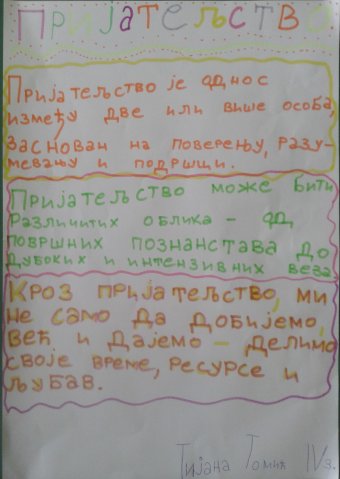 Пријатељство
Пријатељство је однос
између две или више особа,
заснован на поверењу, разу-
мевању и подршци.
Пријатељство може бити
различитих облика - од
површних познанстава до
дубоких и интензивних веза.
Кроз пријатељство, ми
не само да добијемо,
већ и дајемо - делимо
своје време, ресурсе и
љубав.
Тијана Томић IV3.